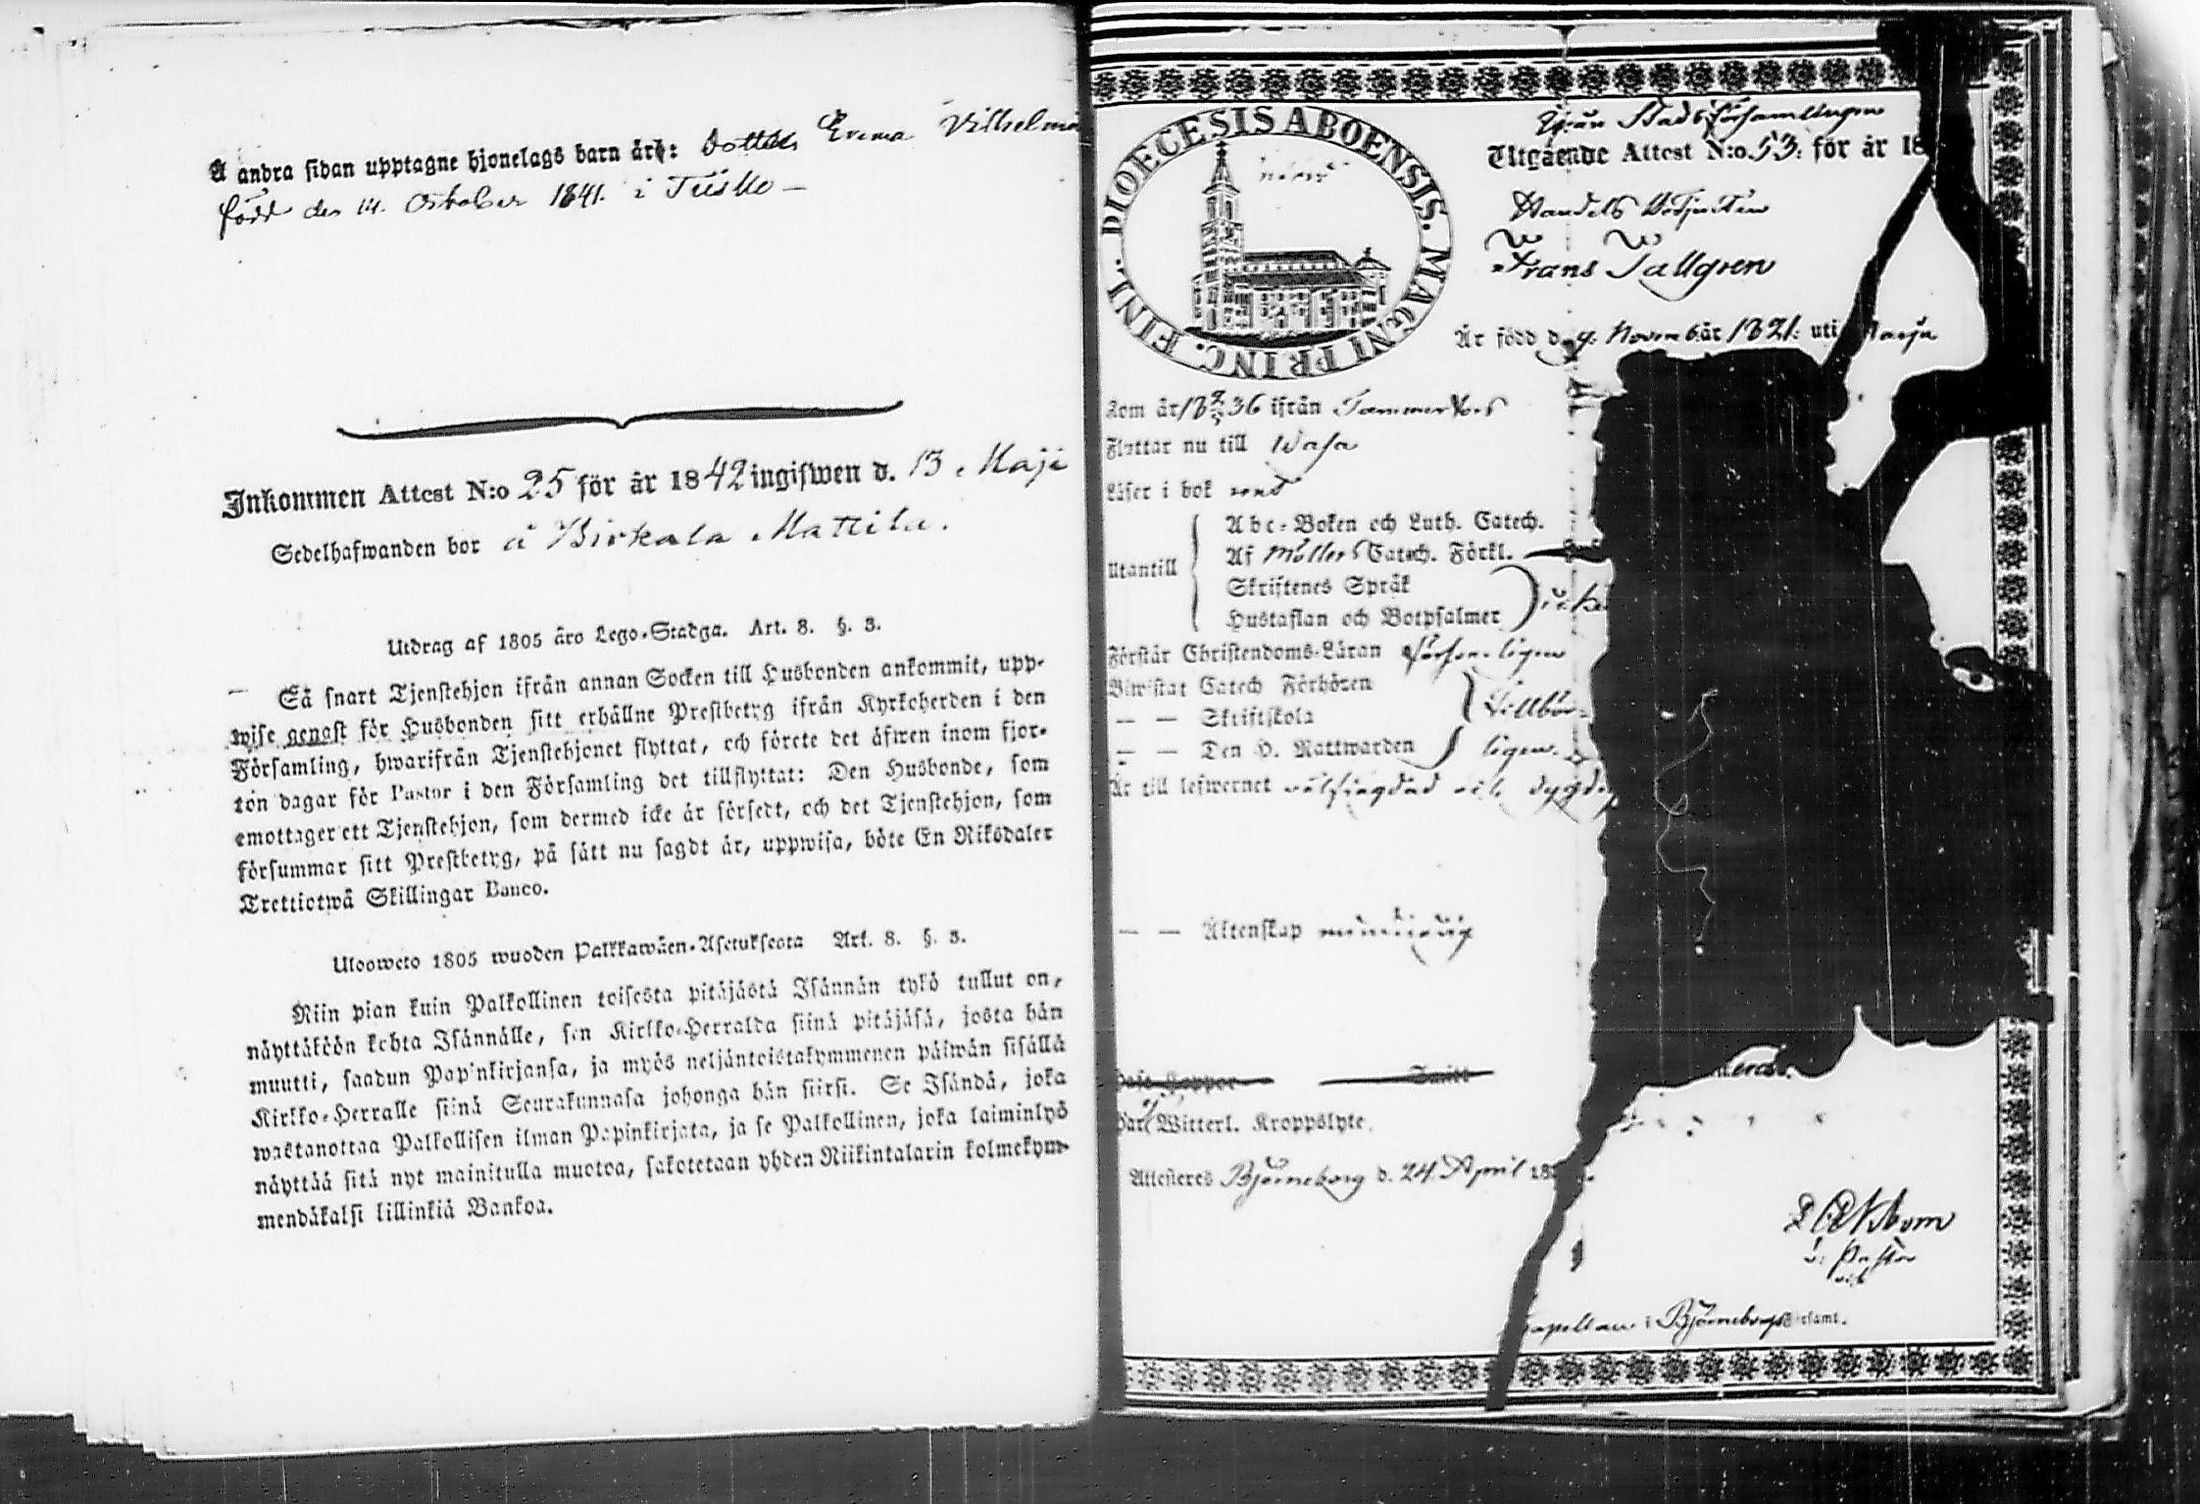 Å andra sidan upptagne hjonelags barn äro: Dottren Erema Vilhelmina
född den 14. October 1841. i Tusko —
Inkommen Attest N:o 25 för år 1842 ingifwen d. 13. Maji
Sedelhafwanden bor å Birkala Mattila.
Utdrag af 1805 åro Lego-Stadga. Art. 8. §. 3.
— Så snart Tjenstehjon ifrån annan Socken till Husbonden ankommit, upp-
wise genast för Husbonden sitt erhållne Prestbetyg ifrån Kyrkoherden i den
Församling, hwarifrån Tjenstehjonet flyttat, och förete det äfwen inom fjor-
ton dagar för Pastor i den Församling det tillflyttat: Den Husbonde, som
emottager ett Tjenstehjon, som dermed icke är försedt, och det Tjenstehjon, som
försummar sitt Prestbetyg, på sätt nu sagdt är, uppwisa, böte En Riksdaler
Trettiotwå Skillingar Banco.
Uloosweto 1805 wuoden Palkkawäen-Asetuksesta Art. 8. §. 3.
Niin pian kuin Palkollinen toisesta pitäjästä Isännän tykö tullut on,
näyttäköön kohta Isännälle, sen Kirkko-Herralda siinä pitäjäsä, josta hän
muutti, saadun Pap'nkirjansa, ja myös neljäntoistakymmenen päiwän sisällä
Kirkko-Herralle siinä Seurakunnasa johonga hän siirsi. Se Isändä, joka
wastanottaa Palkollisen ilman Papinkirjata, ja se Palkollinen, joka laiminlyö
näyttää sitä nyt mainitulla muotoa, sakotetaan yhden Riikintalarin kolmekym-
mendäkaksi killinkiä Bankoa.
DIOECESIS ABOENSIS. MAGNI PRINC. FINL.
Från Stads församlingen
Utgående Attest N:o 53: för år 18
Handels Betjenten
Frans Tallgren
Är född d. 9. Novemb. år 1821: uti
Kom år 1836 ifrån Tammerfors
Flyttar nu till Wasa
Läser i bok
Utantill
Abc-Boken och Luth. Catech.
Af Möllers Catech. Förkl.
Skriftenes Språk
Hustaflan och Botpsalmer
Förstår Christendoms-Läran försvarligen
Biwistat Catech Förhören
— — Skriftskola
Tillbör-
— — Den H. Nattwarden ligen.
Är till lefwernet välfrägdad och dygdig
— — Äktenskap
Haft Koppor
Här Witterl. Kroppslyte.
Attesteres Björneborg d. 24. April 18
v: Pastor
Capellan i Björneborgs Församl.